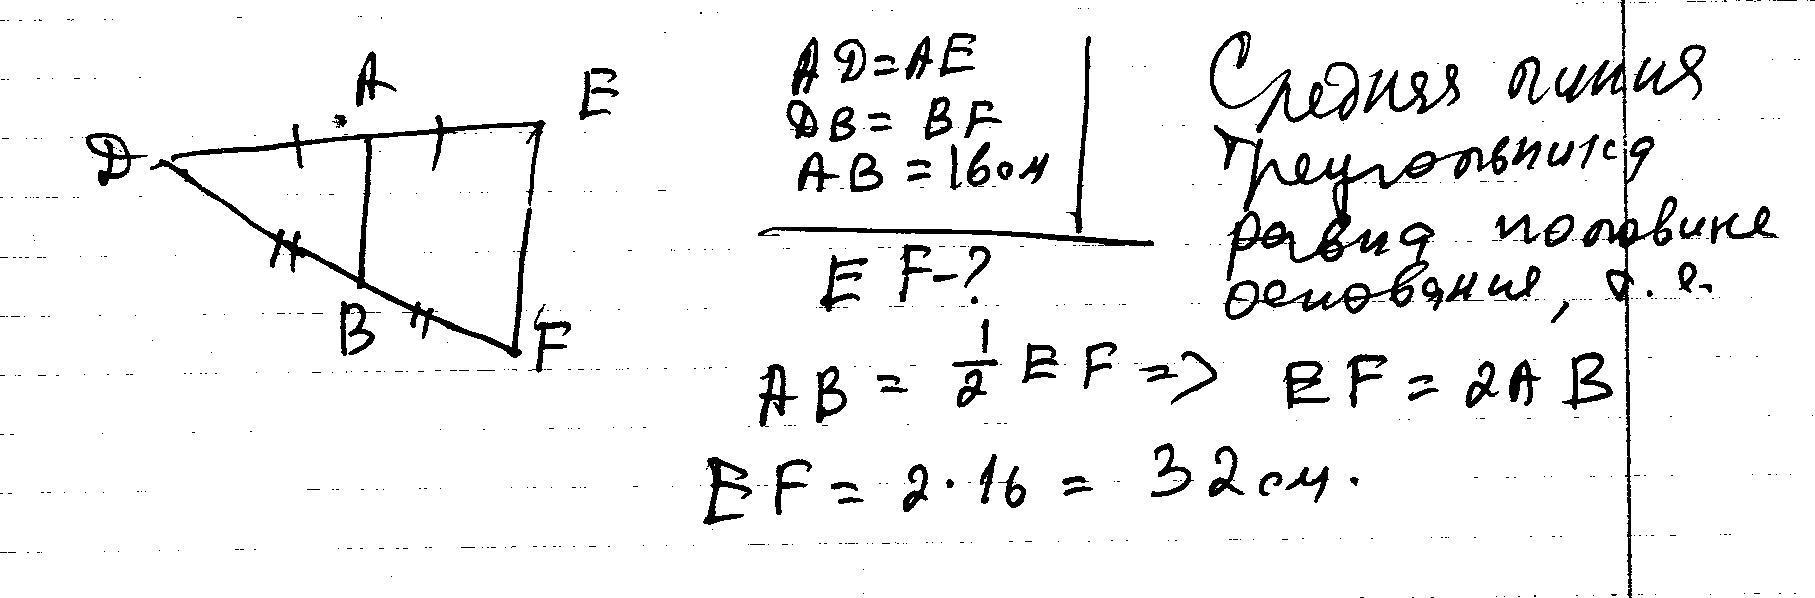 A
E
D
B
F
AD=AE
DB=BF
AB=16см
EF-?
Средняя линия
треугольника
равна половине
основания, т.е.
AB = 1/2 EF => EF = 2AB
EF = 2·16 = 32см.